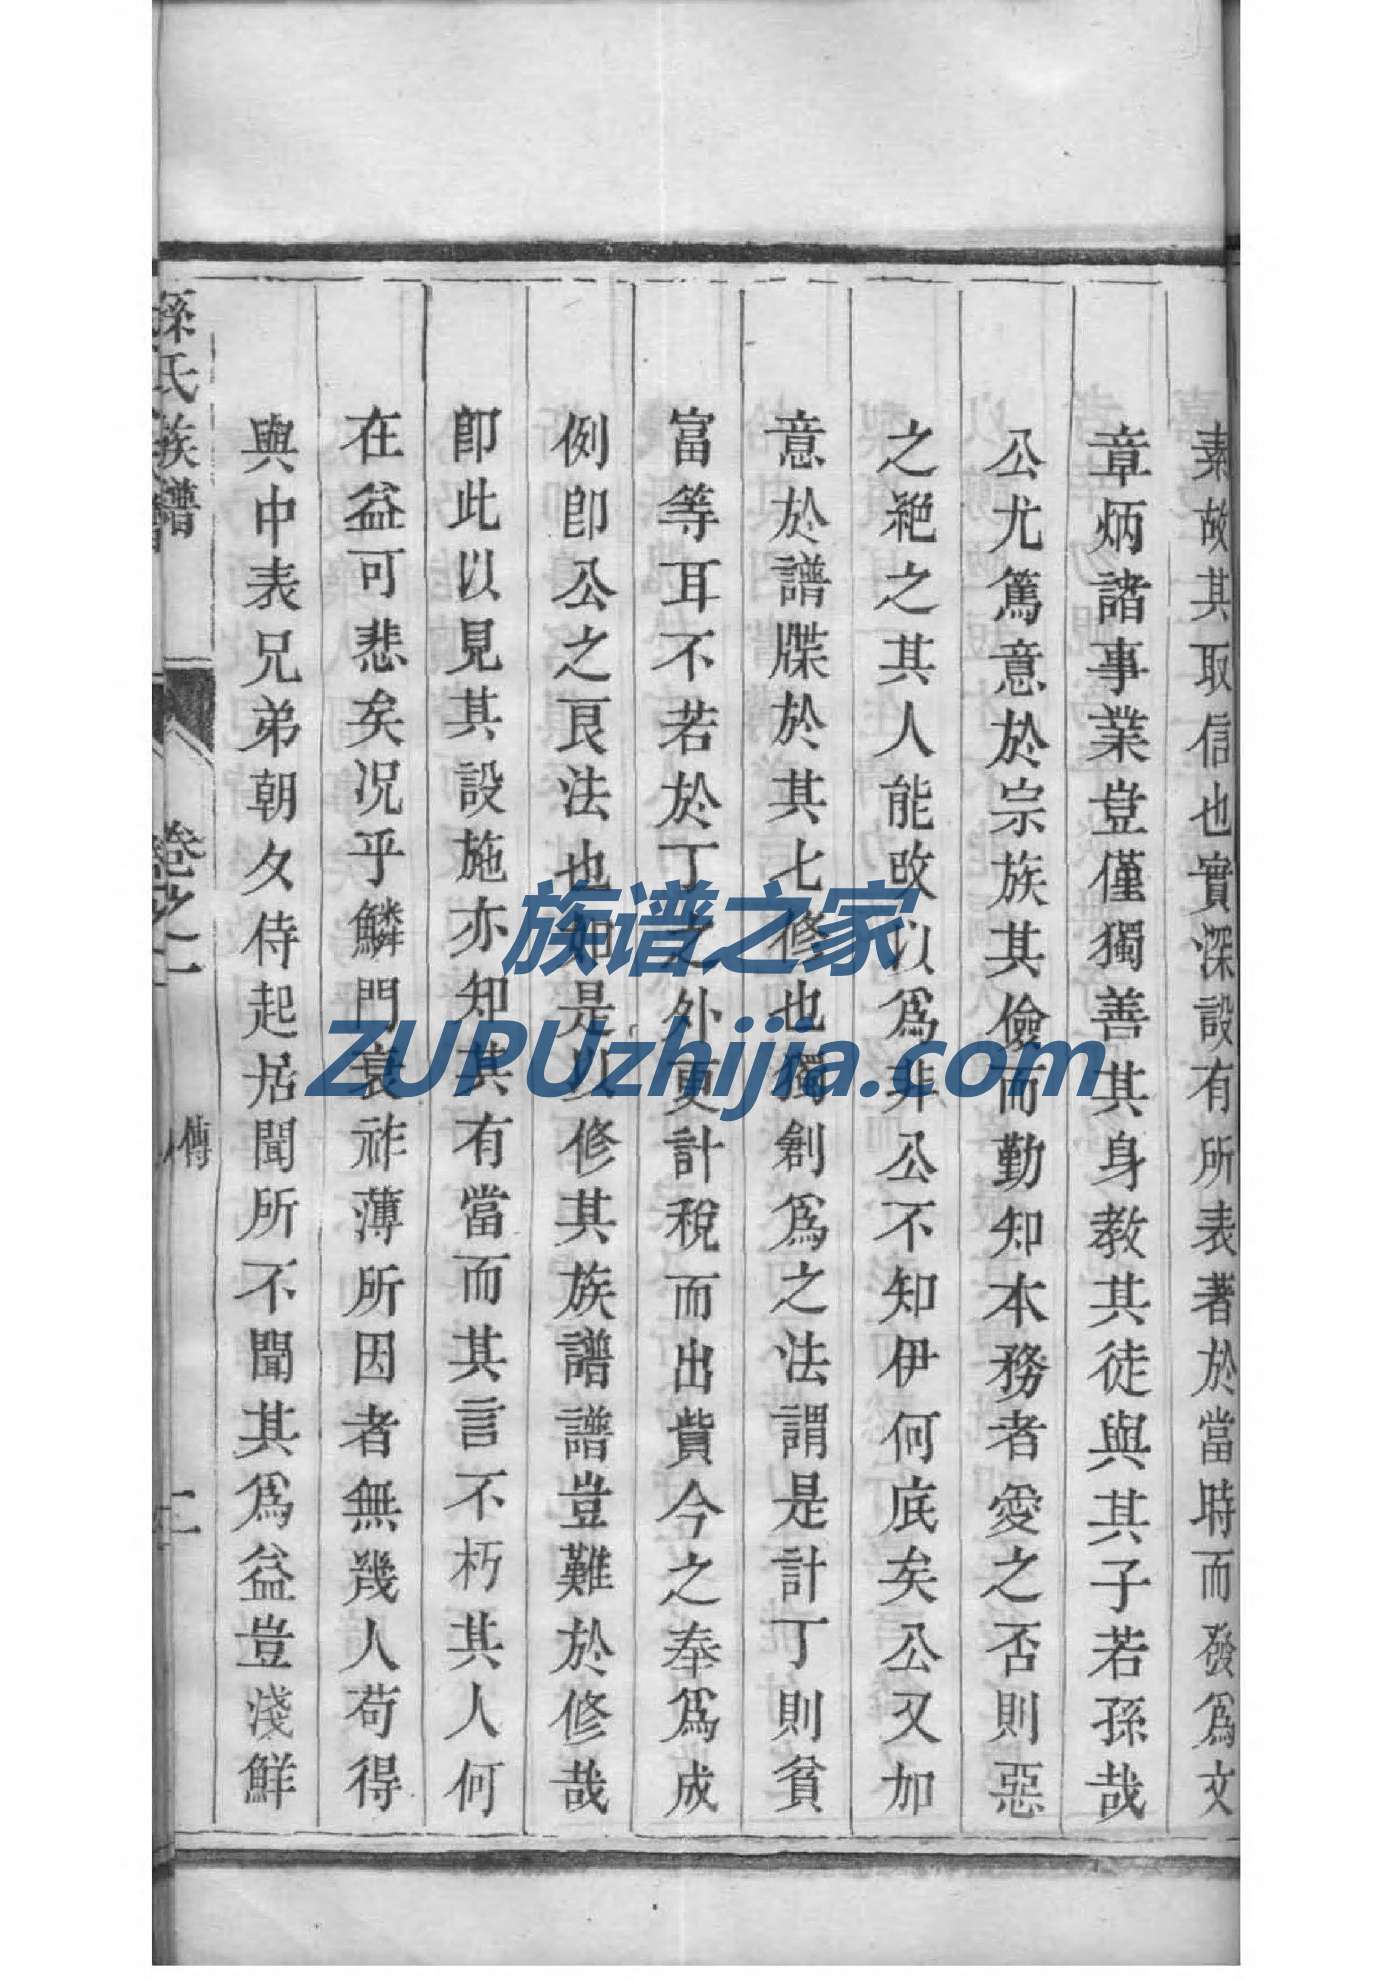 素故其取信也實深設有所表著於當時而發爲文
章炳諸事業豈僅獨善其身教其徒與其子若孫哉
公尤篤意於宗族其儉而勤知本務者愛之否則惡
之絕之其人能改以爲非公不知伊何底矣公又加
意於譜牒於其七修也獨創爲之法謂是計丁則貧
富等耳不若於丁之外更計稅而出貲今之奉爲成
例卽公之良法也如是以修其族譜譜豈難於修哉
卽此以見其設施亦知其有當而其言不朽其人何
在益可悲矣况乎鱗門衰祚薄所因者無幾人苟得
與中表兄弟朝夕侍起居聞所不聞其爲益豈淺鮮
孫氏族譜
卷之一
傳
二
族谱之家
ZUPUzhijia.com